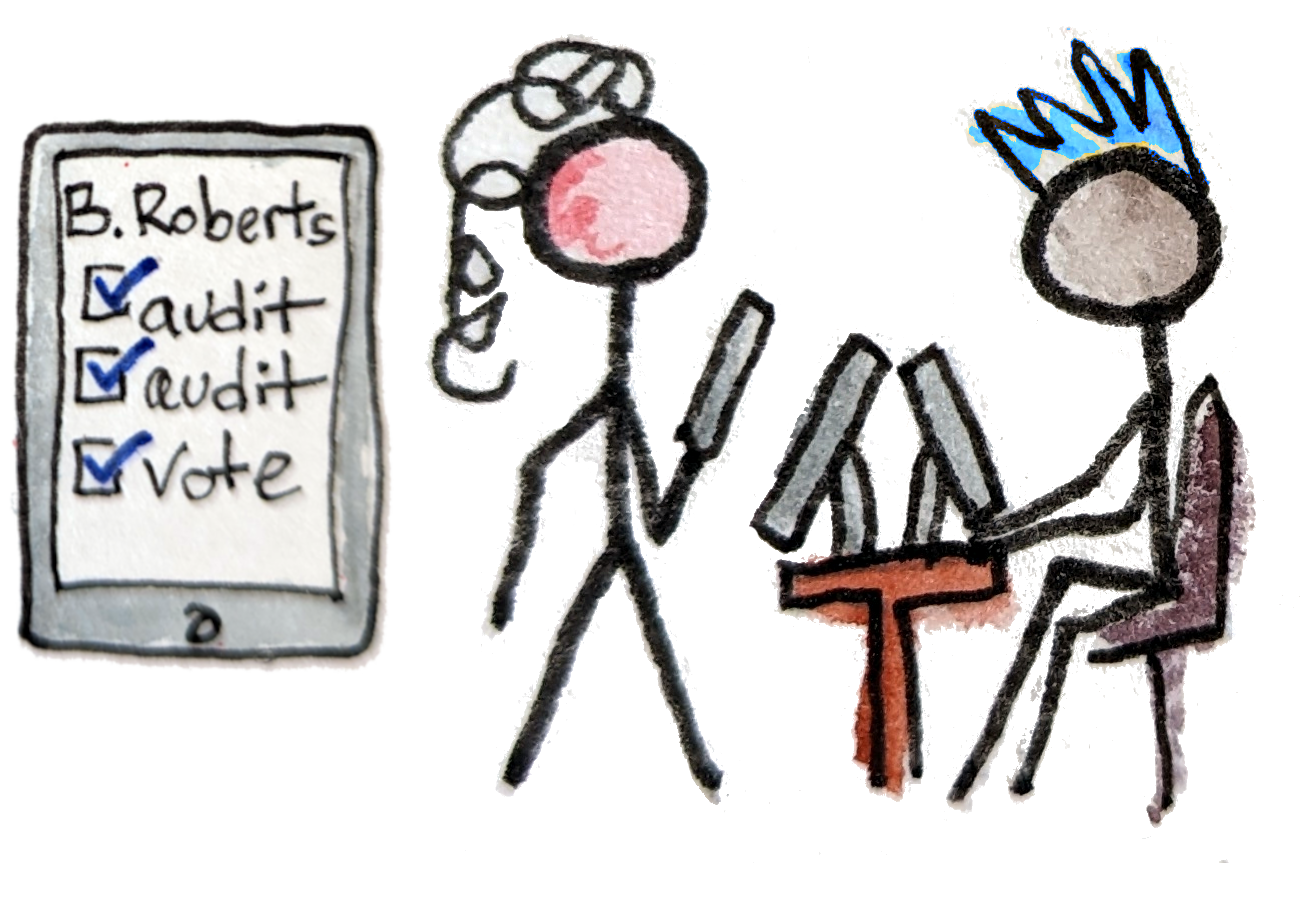 B. Roberts
audit
audit
vote